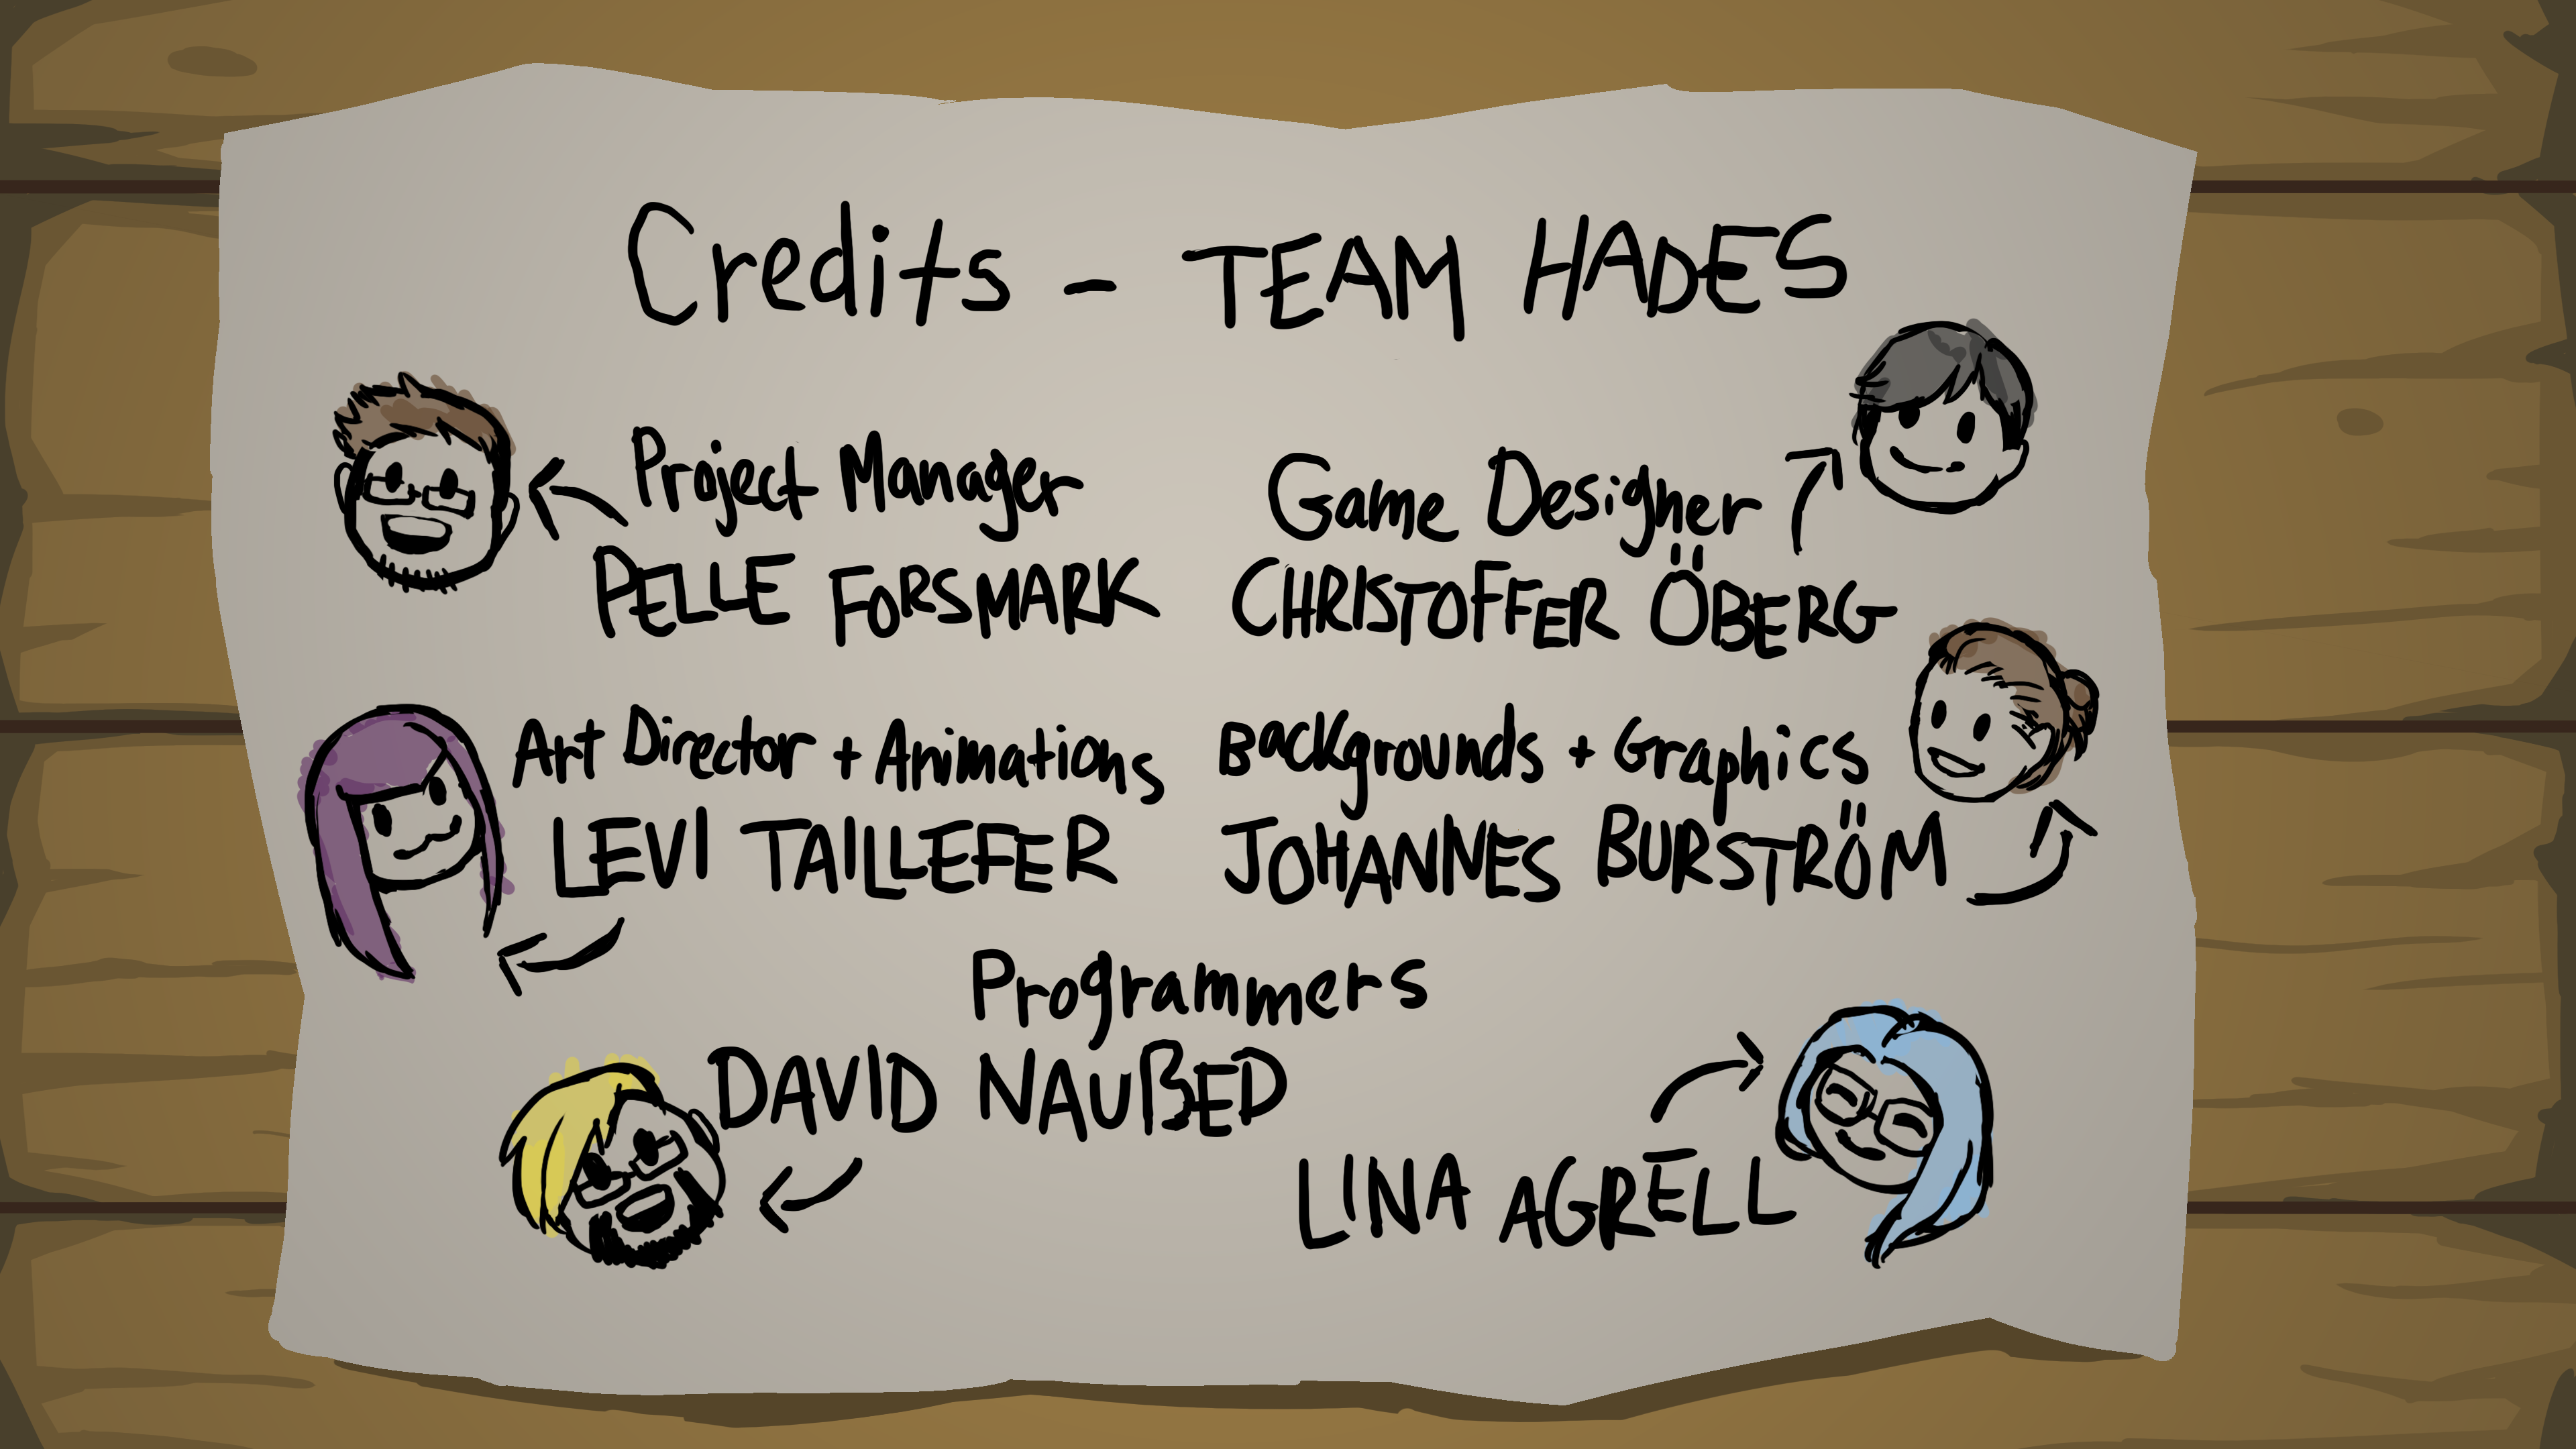 Credits - TEAM HADES
Project Manager
PELLE FORSMARK
Game Designer
CHRISTOFFER ÖBERG
Art Director + Animations
LEVI TAILLEFER
Backgrounds + Graphics
JOHANNES BURSTRÖM
Programmers
DAVID NAUßED
LINA AGRELL